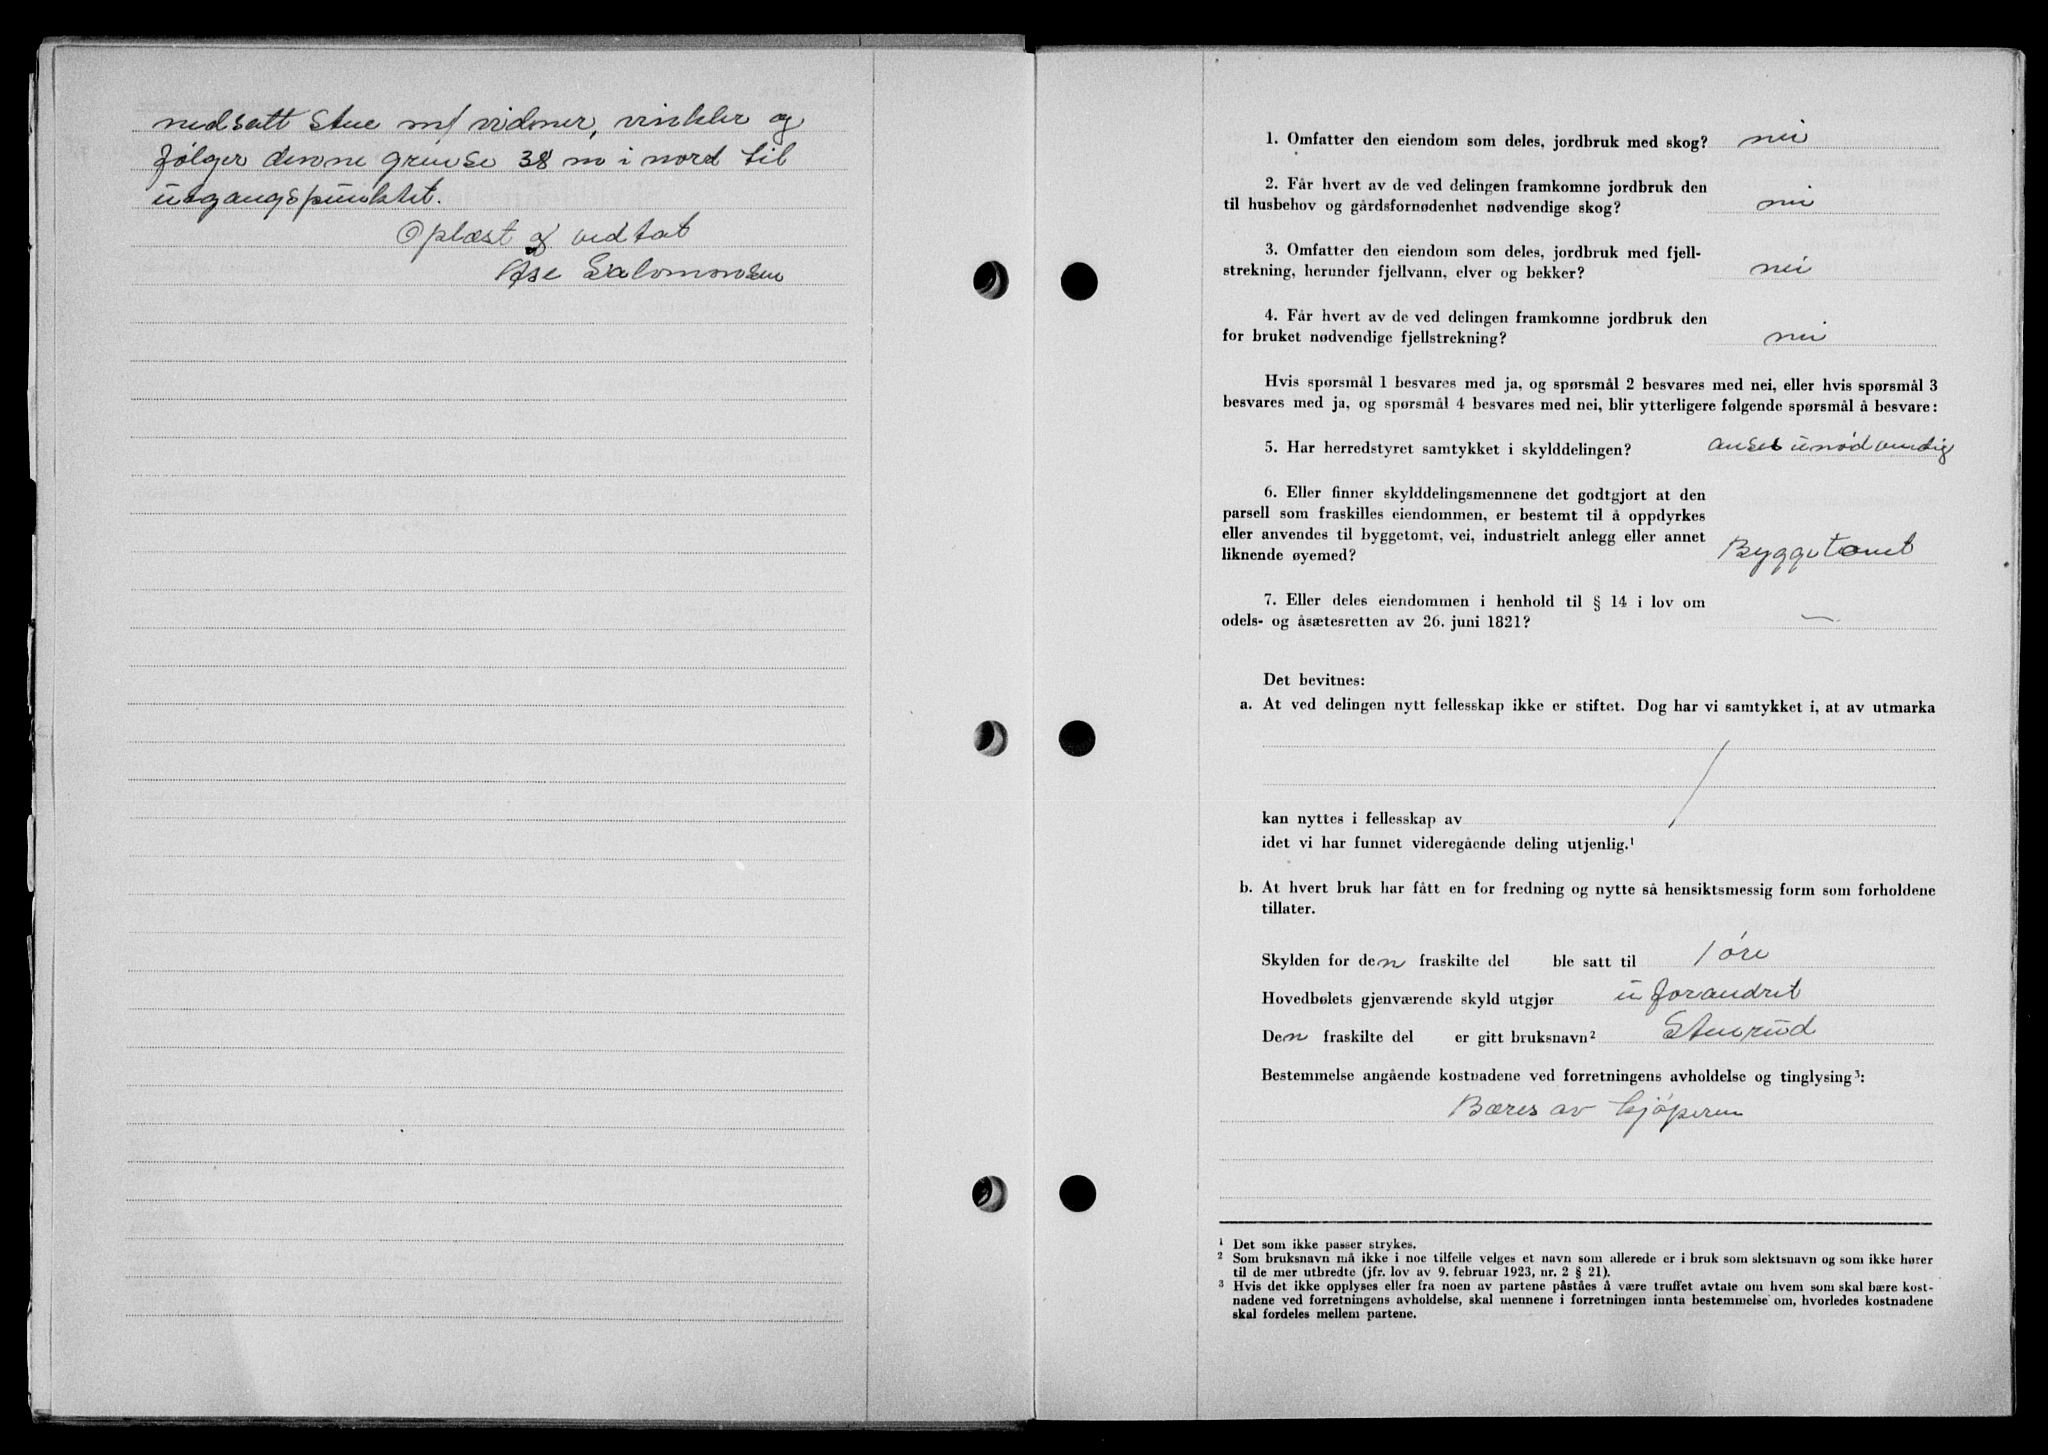 nedsatt Sten m/ vidner, vinkler og
følger denne grense 38 m i nord til
utgangspunktet.
Oplæst og vedtat
Åse Salomonsen
1. Omfatter den eiendom som deles, jordbruk med skog? nei
2. Får hvert av de ved delingen framkomne jordbruk den
til husbehov og gårdsfornødenhet nødvendige skog? nei
3. Omfatter den eiendom som deles, jordbruk med fjell-
strekning, herunder fjellvann, elver og bekker? nei
4. Får hvert av de ved delingen framkomne jordbruk den
for bruket nødvendige fjellstrekning? nei
Hvis spørsmål 1 besvares med ja, og spørsmål 2 besvares med nei, eller hvis spørsmål 3
besvares med ja, og spørsmål 4 besvares med nei, blir ytterligere følgende spørsmål å besvare:
5. Har herredstyret samtykket i skylddelingen? anses unødvendig
6. Eller finner skylddelingsmennene det godtgjort at den
parsell som fraskilles eiendommen, er bestemt til å oppdyrkes
eller anvendes til byggetomt, vei, industrielt anlegg eller annet
liknende øyemed? Byggetomt
7. Eller deles eiendommen i henhold til § 14 i lov om
odels- og åsætesretten av 26. juni 1821? —
Det bevitnes:
a. At ved delingen nytt fellesskap ikke er stiftet. Dog har vi samtykket i, at av utmarka
kan nyttes i fellesskap av
idet vi har funnet videregående deling utjenlig.¹
b. At hvert bruk har fått en for fredning og nytte så hensiktsmessig form som forholdene
tillater.
Skylden for den fraskilte del ble satt til 1 øre
Hovedbølets gjenværende skyld utgjør uforandret
Den fraskilte del er gitt bruksnavn² Stenrud
Bestemmelse angående kostnadene ved forretningens avholdelse og tinglysing³:
Bæres av kjøperen
¹ Det som ikke passer strykes.
² Som bruksnavn må ikke i noe tilfelle velges et navn som allerede er i bruk som slektsnavn og som ikke hører
til de mer utbredte (jfr. lov av 9. februar 1923, nr. 2 § 21).
³ Hvis det ikke opplyses eller fra noen av partene påståes å være truffet avtale om hvem som skal bære kost-
nadene ved forretningens avholdelse, skal mennene i forretningen innta bestemmelse om, hvorledes kostnadene
skal fordeles mellem partene.